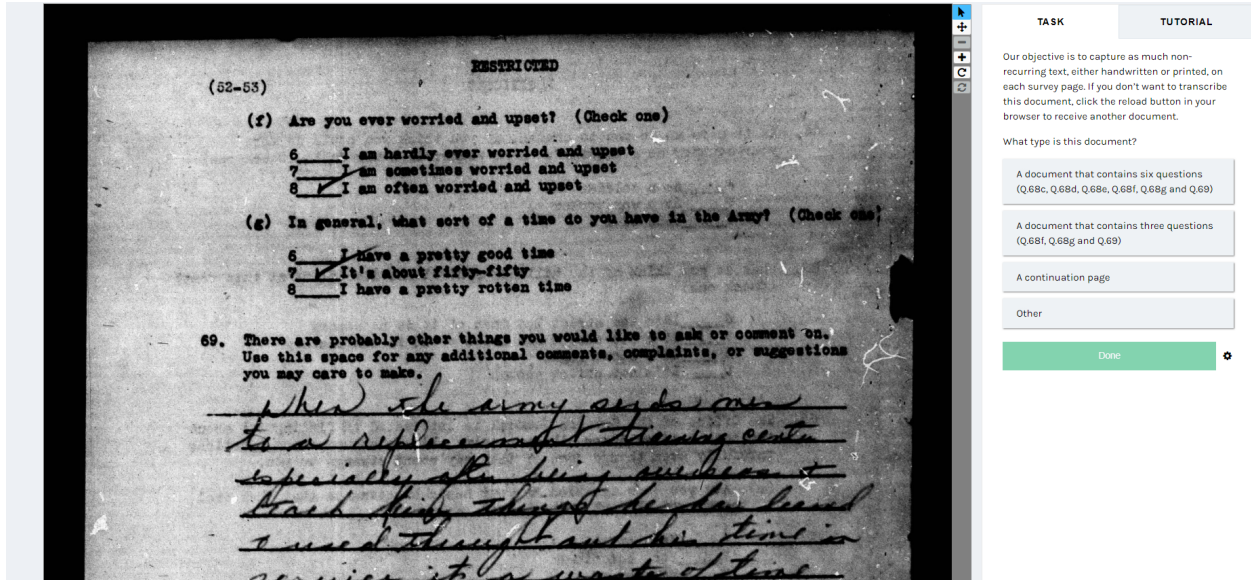 RESTRICTED
(52-53)
(f) Are you ever worried and upset? (Check one)
6____I am hardly ever worried and upset
7____I am sometimes worried and upset
8____I am often worried and upset
(g) In general, what sort of a time do you have in the Army? (Check one)
6____I have a pretty good time
7____It's about fifty-fifty
8____I have a pretty rotten time
69. There are probably other things you would like to ask or comment on.
Use this space for any additional comments, complaints, or suggestions
you may care to make.
When the army sends men
to a replacement training center
especially after being overseas &
teach him things he has learned
& used throughout his time in
service it's a waste of time
TASK
TUTORIAL
Our objective is to capture as much non-
recurring text, either handwritten or printed, on
each survey page. If you don't want to transcribe
this document, click the reload button in your
browser to receive another document.
What type is this document?
A document that contains six questions
(Q.68c, Q.68d, Q.68e, Q.68f, Q.68g and Q.69)
A document that contains three questions
(Q.68f, Q.68g and Q.69)
A continuation page
Other
Done